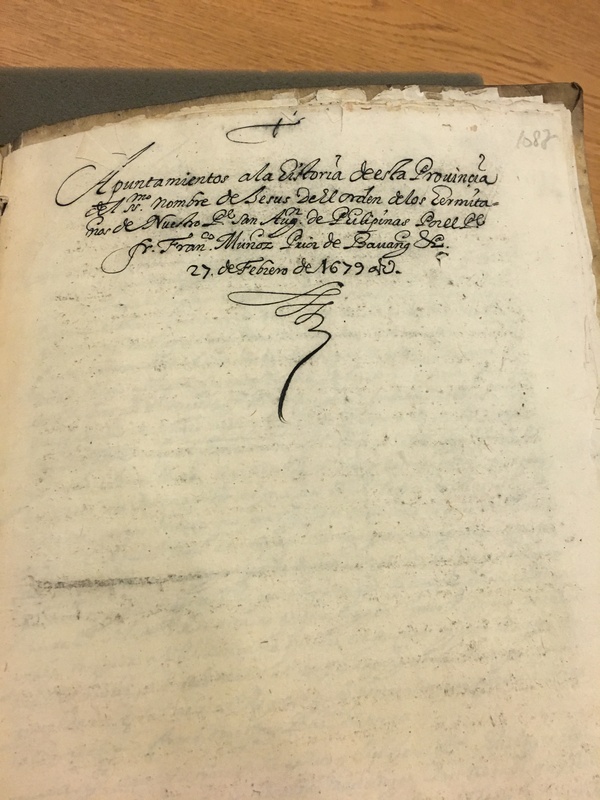 1087
Apuntamientos a la Historia de esta Provincia
del SS.mo nombre de Jesus Del orden de los Hermita-
ños de Nuestro P.e San Aug.n de Philipinas Por el P.e
fr. Fran.co Muñoz Prior de Bauang &a.
27. de Febrero de 1679 a.s